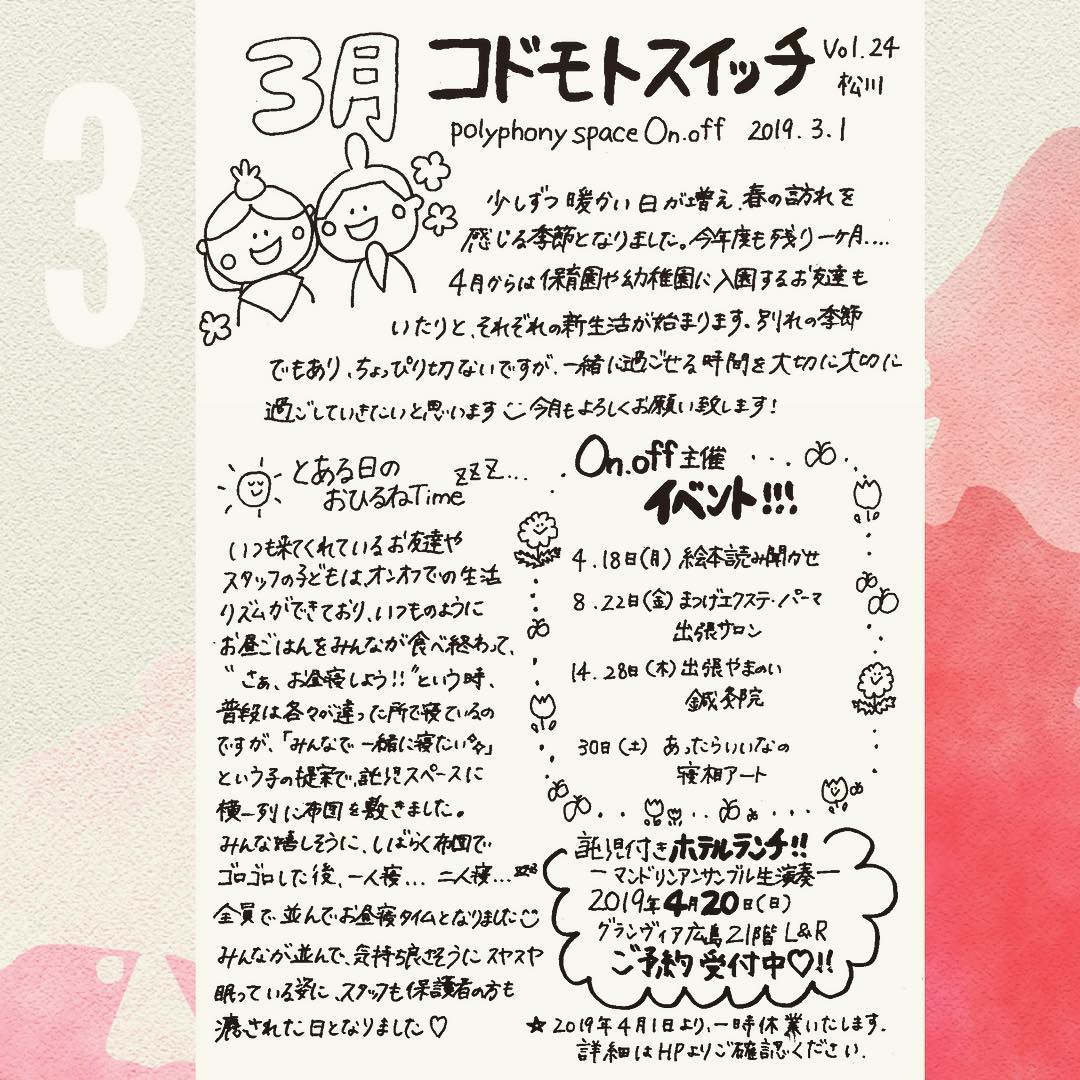 3
3月
コドモトスイッチ
Vol.24
松川
polyphony space On.off 2019.3.1
少しずつ暖かい日が増え、春の訪れを
感じる季節となりました。今年度も残り一ヶ月....
4月からは保育園や幼稚園に入園するお友達も
いたりと、それぞれの新生活が始まります。別れの季節
でもあり、ちょっぴり切ないですが、一緒に過ごせる時間を大切に大切に
過ごしていきたいと思います 今月もよろしくお願い致します!
とある日の
おひるねTime
zzz...
いつも来てくれているお友達や
スタッフの子どもは、オンオフでの生活
リズムができており、いつものように
お昼ごはんをみんなが食べ終わって、
"さぁ、お昼寝しよう!!"という時、
普段は各々が違った所で寝ているの
ですが、「みんなで一緒に寝たい」
という子の提案で、託児スペースに
横一列に布団を敷きました。
みんな嬉しそうに、しばらく布団で
ゴロゴロした後、一人寝... 二人寝...zzz
全員で並んでお昼寝タイムとなりました
みんなが並んで、気持ち良さそうにスヤスヤ
眠っている姿に、スタッフも保護者の方も
癒された日となりました♡
On.off 主催
イベント!!!
4.18日(月) 絵本読み聞かせ
8.22日(金) まつげエクステ・パーマ
出張サロン
14.28日(木) 出張やまのい
鍼灸院
30日(土) あったらいいなの
寝相アート
託児付きホテルランチ!!
ーマンドリンアンサンブル生演奏ー
2019年4月20日(日)
グランヴィア広島21階 L&R
ご予約受付中♡!!
★2019年4月1日より、一時休業いたします.
詳細はHPよりご確認ください.